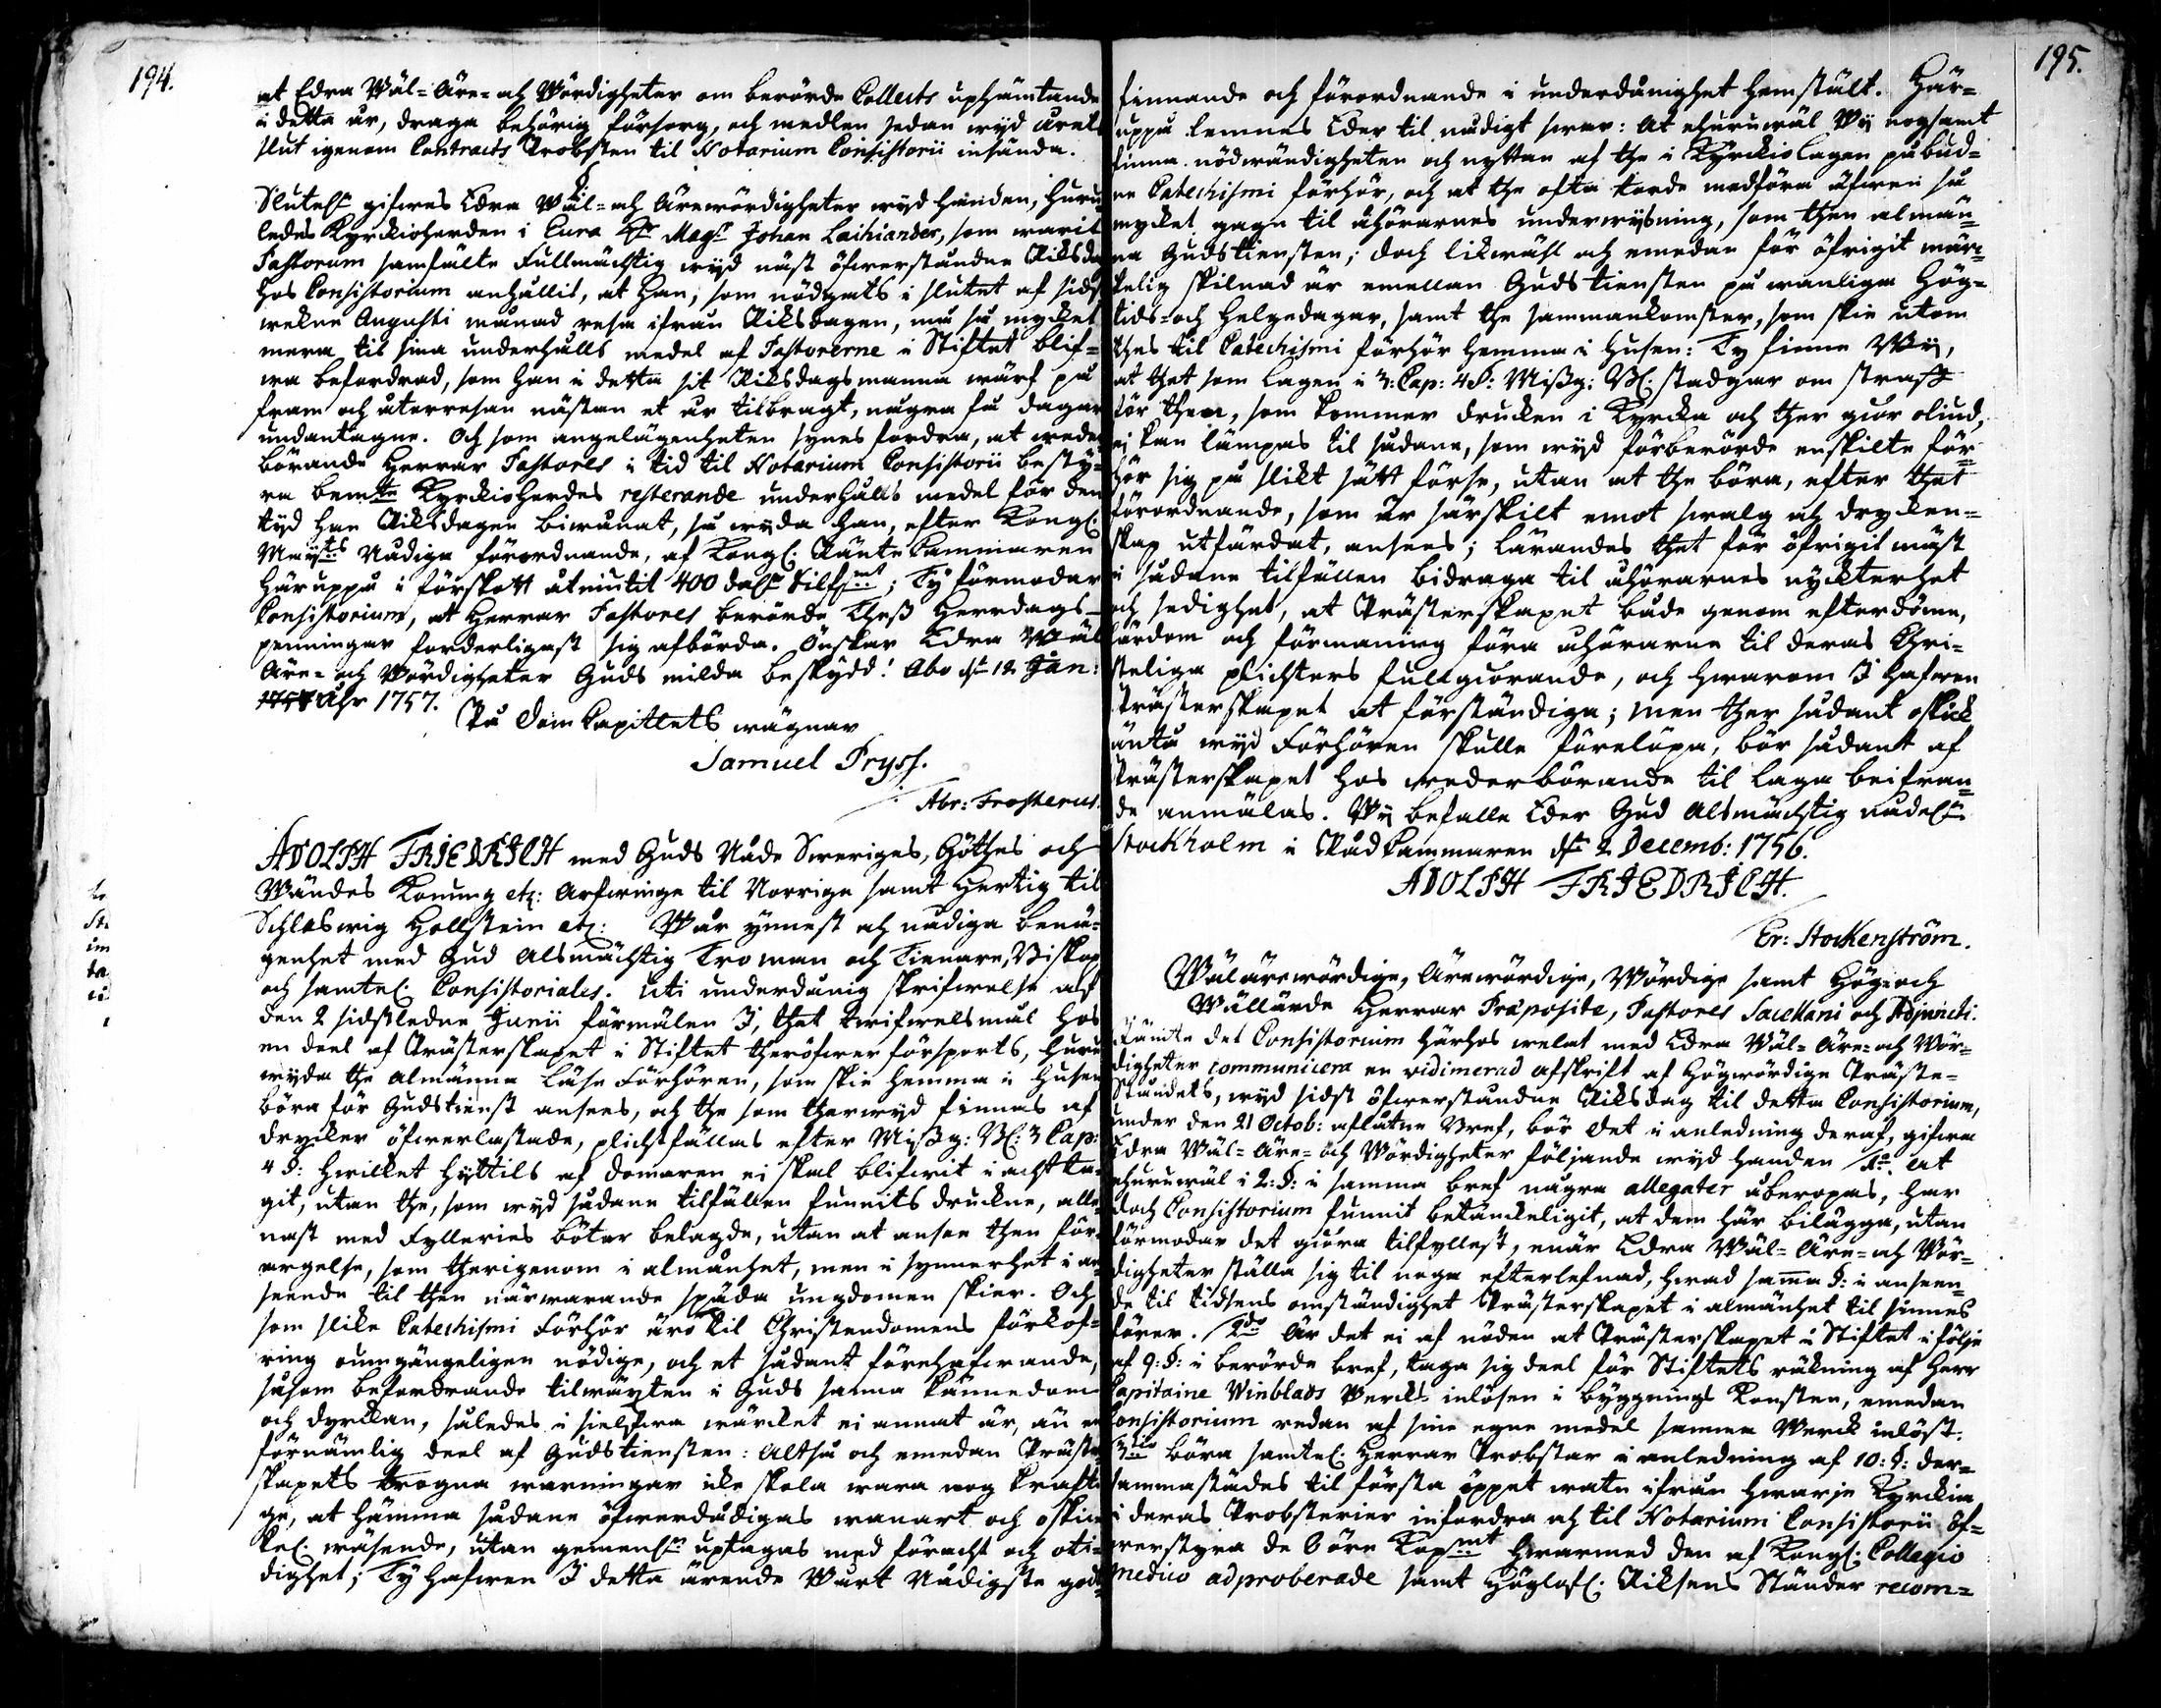 194.
at Edra Wäl-Äre- och Wördigheter om berörde Collects uphämtande
i detta år, draga behörig försorg, och medlen sedan wyd årets
slut igenom Contracts Probsten til Notarium Consistorii insända.
Slutel. gifwes Edra Wäl- och Ärewördigheter wyd handen, huru-
ledes Kyrckioherden i Eura Hr Magr Johan Laihiander, som warit
Pastorum samfälte Fullmächtig wyd näst öfwerståndne Riksda
hos Consistorium anhållit, at han, som nödgats i slutet af sidst
wekne Augusti månad resa ifrån Riksdagen, må så mycket
mera til sina underhålls medel af Pastorerne i Stiftet blif-
wa befordrad, som han i detta sit Riksdagsmanna wärf på
fram och återresan nästan et år tilbragt, några få dagar
undantagne. Och som angelägenheten synes fordra, at weder-
börande Herrar Pastores i tid til Notarium Consistorii besty-
ra bemte Kyrckioherdes resterande underhålls medel för den
tyd han Riksdagen biwånat, så wyda han, efter Kongl.
Mayts Nådiga förordnande, af Kongl. Ränte Cammaren
häruppå i förskott åtniutit 400 dalr Silfmt; Ty förmodar
Consistorium, at Herrar Pastores berörde Theß Herrdags-
penningar forderligast sig afbörda. Önskar Edra Wäl-
Äre- och Wördigheter Guds milda beskydd! Åbo dn 12 Jan:
1757 Åhr 1757.
På Dom Capitlets wägnar
Samuel Pryss.
Abr: Frosterus.
ADOLPH FRIEDRICH med Guds Nåde Sweriges, Göthes och
Wändes Konung etc: Arfwinge til Norrige samt Hertig til
Schleswig Hollstein etc: Wår ynnest och nådiga benä-
genhet med Gud Alsmächtig Troman och Tienare, Biskop
och samtel. Consistoriales. Uti underdånig skrifwelse af
den 2 sidstledne Junii förmälen I, thet twifwelsmål hos
en deel af Prästerskapet i Stiftet theröfwer försports, huru
wyda the almänna Läse Förhören, som skie hemma i husen
böra för Gudstienst ansees, och the som therwyd finnas af
drycker öfwerlastade, plichtfällas efter Mißg: B: 3 Cap:
4 §: hwilket hyttils af domaren ei skal blifwit i acht ta-
git, utan the, som wyd sådane tilfällen funnits druckne, alle-
nast med Fylleries böter belagde, utan at ansee then för-
argelse, som therigenom i almänhet, men i synnerhet i an-
seende til then närwarande späda ungdomen skier. Och
som slike Catechismi Förhör äro til Christendomens förkof-
ring oumgängeligen nödige, och et sådant förehafwande,
såsom befordrande tilwäxten i Guds sanna kännedom
och dyrckan, således i sielfwa wärcket ei annat är, än en
förnämlig deel af Gudstiensten: Altså och emedan Präster-
skapets trogna warningar icke skola wara nog krafti-
ge, at hämma sådane öfwerdådigas wanart och oskic-
kel. wäsende, utan gemenl. uptagas med föracht och oti-
dighet; Ty hafwen I detta ärende Wårt Nådigste godt-
195.
finnande och förordnande i underdånighet hemstält. Här-
uppå lemnes Eder til nådigt swar: At ehuruwäl Wij nogsamt
finna nödwändigheten och nyttan af the i Kyrckiolagen påbud-
ne Catechismi förhör, och at the ofta torde medföra äfwen så
mycket gagn til åhörarnes underwysning, som then almän-
na Gudstiensten; doch likwähl och emedan för öfrigit mär-
kelig skilnad är emellan Gudstiensten på wanliga Hög-
tids- och Helgedagar, samt the sammankomster, som skie utom
thes til Catechismi förhör hemma i husen: Ty finne Wij,
at thet som lagen i 3: Cap: 4 §: Mißg: B: stadgar om straff
för them, som kommer drucken i Kyrcka och ther giör oliud,
ei kan lämpas til sådane, som wyd förberörde enskilte för-
hör sig på slikt sätt förse, utan at the böra, efter thet
förordnande, som är särskilt emot swalg och drycken-
skap utfärdat, ansees; lärandes thet för öfrigit mäst
i sådane tilfällen bidraga til åhörarnes nyckterhet
och sedighet, at Prästerskapet både genom efterdöme,
lärdom och förmaning föra åhörarne til deras Chri-
steliga plichters fullgiörande, och hwarom I hafwen
Prästerskapet at förständiga; Men ther sådant oskick
ändå wyd Förhören skulle förelöpa, bör sådant af
Prästerskapet hos wederbörande til laga beifran-
de anmälas. Wij befalle Eder Gud Alsmächtig nådel.
Stockholm i Rådkammaren dn 2 Decemb: 1756.
ADOLPH FRIEDRICH.
Er: Stockenström.
Wälärewördige, Ärewördige, Wördige samt Hög- och
Wällärde Herrar Præposite, Pastores Sacellani och Adjuncti.
Jämte det Consistorium härhos welat med Edra Wäl-Äre- och Wör-
digheter communicera en vidimerad afskrift af Högwördige Präste-
Ståndets, wyd sidst öfwerståndne Riksdag til detta Consistorium,
under den 21 Octob: aflåtne Bref, bör det i anledning deraf, gifwa
Edra Wäl-Äre- och Wördigheter följande wyd handen 1o. At
ehuruwäl i 2: §: i samma bref några allegater åberopas, har
doch Consistorium funnit betänckeligit, at dem här bilägga, utan
förmodar det giöra tilfyllest, enär Edra Wäl-Äre- och Wör-
digheter ställa sig til noga efterlefnad, hwad sama §: i anseen-
de til tidsens omständighet Prästerskapet i almänhet til sinnes
förer. 2do Är det ei af nöden at Prästerskapet i Stiftet i följe
af 9: §: i berörde bref, taga sig deel för Stiftets räkning af Herr
Capitaine Winblads Wercks inlösen i byggnings Konsten, emedan
Consistorium redan af sine egne medel samma Werck inlöst.
3tio böra samtel. Herrar Probstar i anledning af 10: §: der-
sammastädes til första öppet watn ifrån hwarje Kyrckia
i deras Probsterier infordra och til Notarium Consistorii öf-
werstyra de Öre Kopmt hwarmed den af Kongl. Collegio
Medico adproberade samt Höglofl. Riksens Ständer recom-